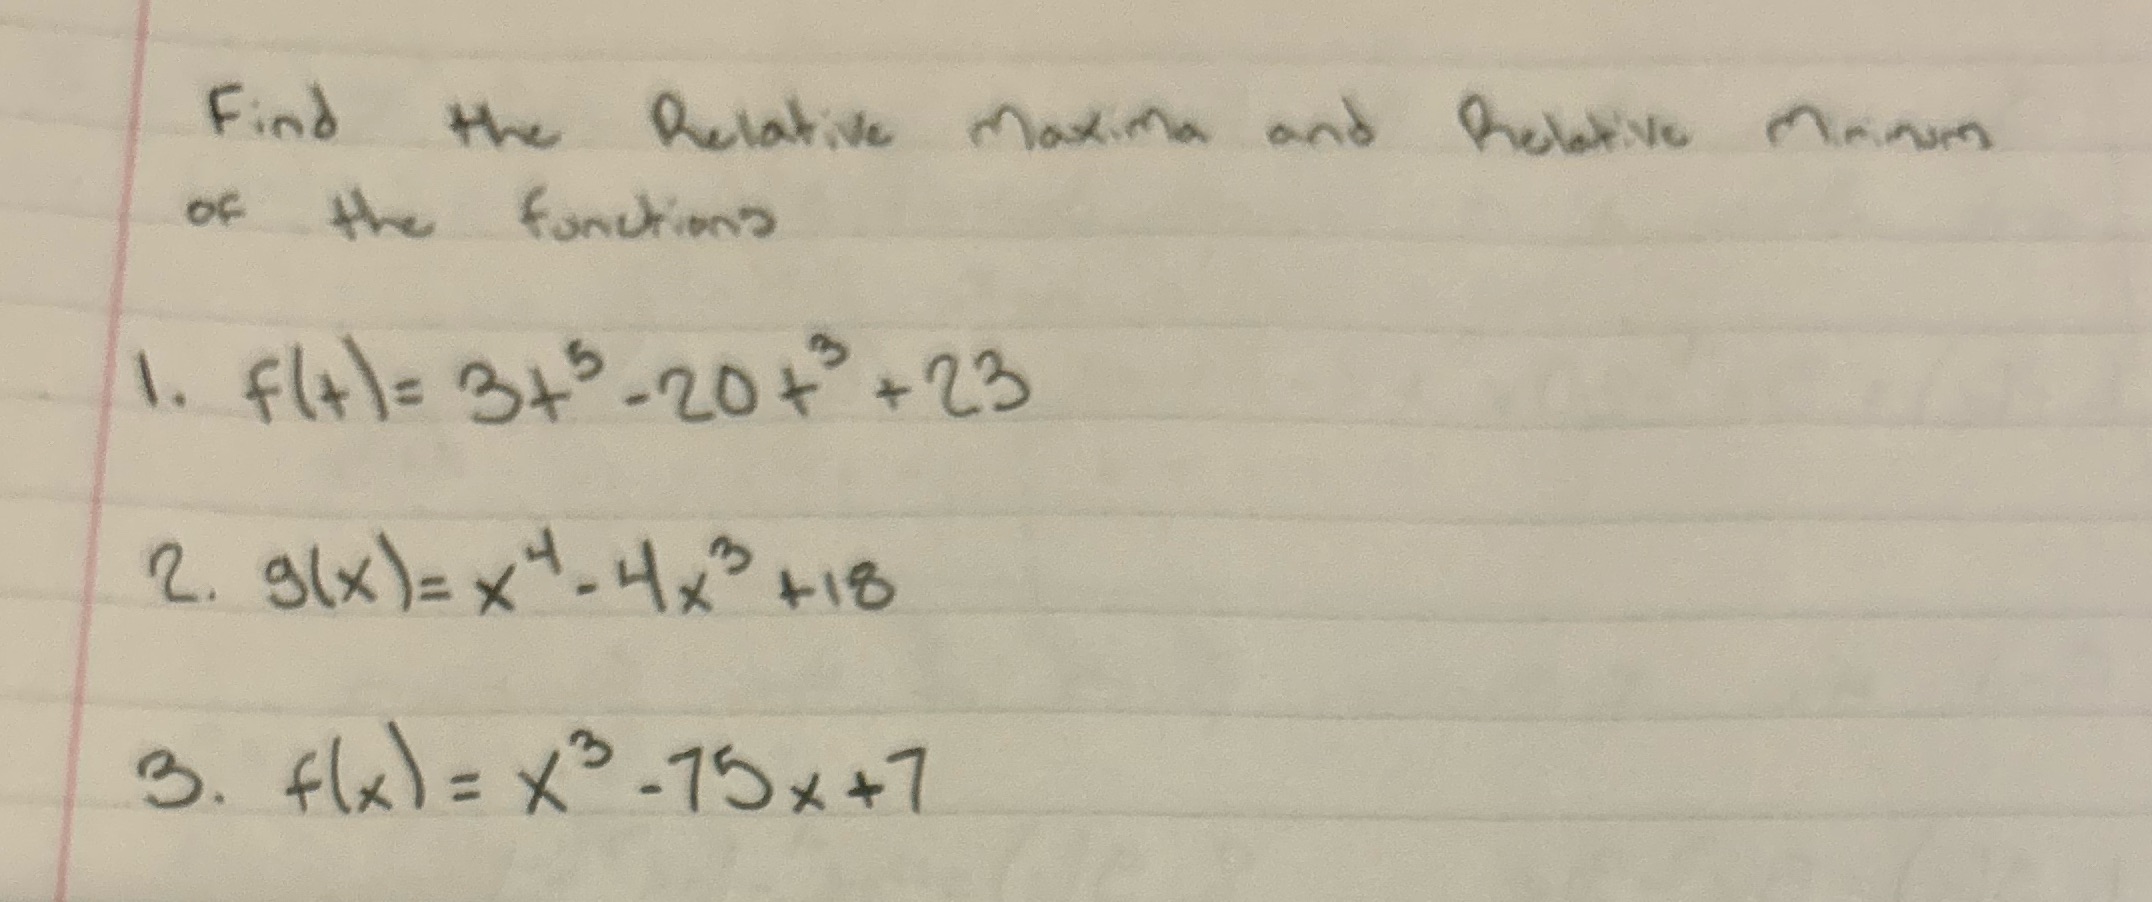 Find the Relative Maxima and Relative Minimum
of the functions
1. f(t)= 3t⁵-20t³+23
2. g(x)= x⁴-4x³+18
3. f(x)= x³-75x+7